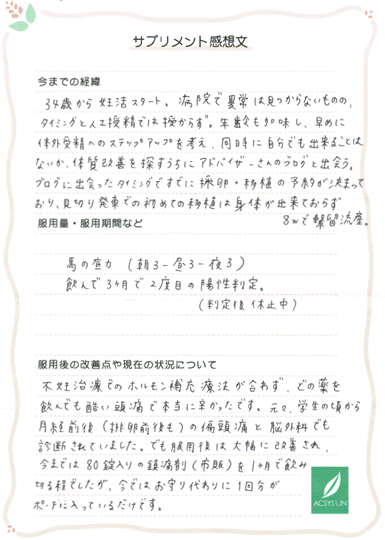 サプリメント感想文
今までの経緯
34歳から妊活スタート。病院で異常は見つからないものの、
タイミングと人工授精では授からず。年齢も加味し、早めに
体外受精へのステップアップを考え、同時に自分でも出来ることは
ないか、体質改善を探すうちにアドバイザーさんのブログと出会う。
ブログに出会ったタイミングですでに採卵+移植の予約が決まって
おり、見切り発車での初めての移植は身体が出来ておらず
8wで稽留流産。
服用量・服用期間など
馬の底力 (朝3-昼3-夜3)
飲んで3ヶ月で2度目の陽性判定。
(判定後休止中)
服用後の改善点や現在の状況について
不妊治療でのホルモン補充療法が合わず、どの薬を
飲んでも酷い頭痛で本当に辛かったです。元々、学生の頃から
月経前後(排卵前後も)の偏頭痛と脳外科でも
診断されていました。でも服用後は大幅に改善され、
今までは80錠入りの鎮痛剤(市販)を1ヶ月で飲み
切る程でしたが、今ではお守り代わりに1回分が
ポーチに入っているだけです。
ACSYS LIN